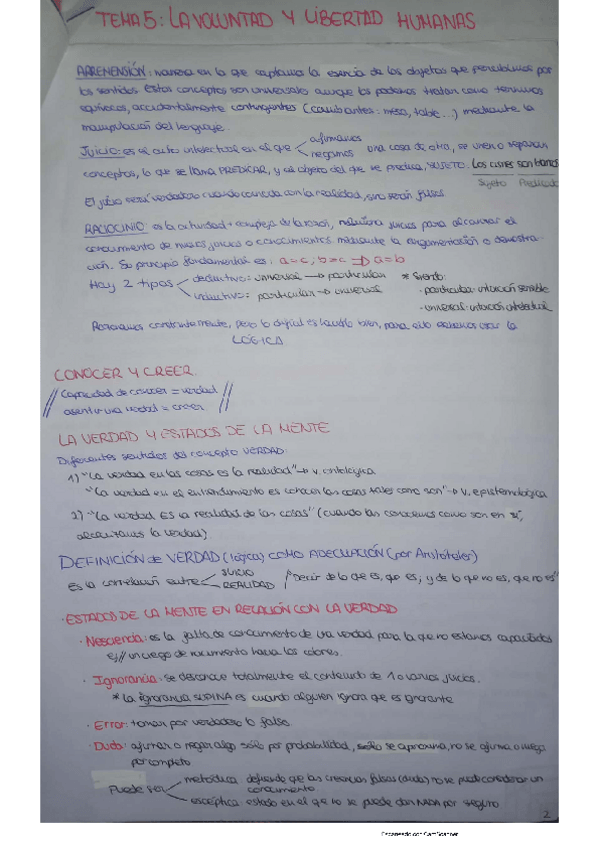 TEMA 5: LA VOLUNTAD Y LIBERTAD HUMANAS
APREHENSIÓN: manera en la que captamos la esencia de los objetos que percibimos por
los sentidos. Estos conceptos son universales aunque los podemos tratar como términos
equívocos, accidentalmente contingentes (cambiantes: mesa, table...) mediante la
manipulación del lenguaje.
Juicio: es el acto intelectual en el que < afirmamos / negamos una cosa de otra, se unen o separan
conceptos, lo que se llama PREDICAR, y el objeto del que se predica, SUJETO. Los cisnes son blancos
Sujeto Predicado
El juicio será verdadero cuando coincida con la realidad, sino serán falsos.
RACIOCINIO: es la actividad + compleja de la razón, relaciona juicios para alcanzar el
conocimiento de nuevos juicios o conocimientos mediante la argumentación o demostra-
ción. Su principio fundamental es: a=c; b=c => a=b
Hay 2 tipos < deductivo: universal → particular * Siendo:
inductivo: particular → universal · particular: intuición sensible
· universal: intuición intelectual
Razonamos constantemente, pero lo difícil es hacerlo bien, para ello debemos usar la
LÓGICA
CONOCER Y CREER
// Capacidad de conocer = verdad //
// asentir a una verdad = creer //
LA VERDAD Y ESTADOS DE LA MENTE
Diferentes sentidos del concepto VERDAD:
1) "La verdad en las cosas es la realidad" → v. ontológica
"La verdad en el entendimiento es conocer las cosas tales como son" → v. epistemológica
2) "La verdad ES la realidad de las cosas" (cuando las conocemos como son en sí,
alcanzamos la verdad)
DEFINICIÓN de VERDAD (lógica) COMO ADECUACIÓN (por Aristóteles)
Es la correlación entre < JUICIO / REALIDAD / "Decir de lo que es, que es; y de lo que no es, que no es"
· ESTADOS DE LA MENTE EN RELACIÓN CON LA VERDAD
· Nesciencia: es la falta de conocimiento de una verdad para la que no estamos capacitados
ej// un ciego de nacimiento hacia los colores.
· Ignorancia: se desconoce totalmente el contenido de 1 o varios juicios.
* La ignorancia SUPINA es cuando alguien ignora que es ignorante
· Error: tomar por verdadero lo falso.
· Duda: afirmar o negar algo sólo por probabilidad, sólo se aproxima, no se afirma o niega
por completo
Puede ser < metódica: defiende que las creencias falsas (duda) no se puede considerar un
conocimiento
escéptica: estado en el que no se puede dar NADA por seguro
2
Escaneado con CamScanner